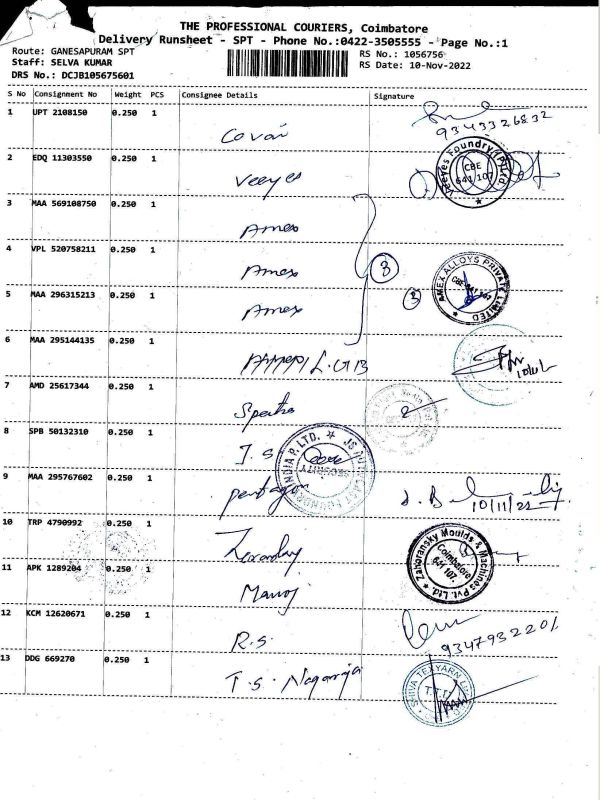 THE PROFESSIONAL COURIERS, Coimbatore
Delivery Runsheet - SPT - Phone No.:0422-3505555 - Page No.:1
Route: GANESAPURAM SPT
RS No.: 1056756
Staff: SELVA KUMAR
RS Date: 10-Nov-2022
DRS No.: DCJB105675601
S No Consignment No Weight PCS Consignee Details Signature
1 UPT 2108150 0.250 1
Covai
9343326832
2 EDQ 11303550 0.250 1
Veeyes
Veeyes Foundry
CBE
641 107
3 MAA 569108750 0.250 1
Amex
4 VPL 520758211 0.250 1
Amex
3
AMEX ALLOYS PRIVATE LIMITED
5 MAA 296315213 0.250 1
Amex
3
6 MAA 295144135 0.250 1
L.G.B
7 AMD 25617344 0.250 1
Spectra
8 SPB 50132310 0.250 1
J.S
INDIA P. LTD.
SECURITY
9 MAA 295767602 0.250 1
pentagon
10/11/22
10 TRP 4790992 0.250 1
Zahoransky Moulds & Machines Pvt. Ltd.
Coimbatore
641 107.
11 APK 1289204 0.250 1
Manoj
12 KCM 12620671 0.250 1
R.S.
13 DDG 669270 0.250 1
T.S. Nagaraja
SHIVA TEXYARN